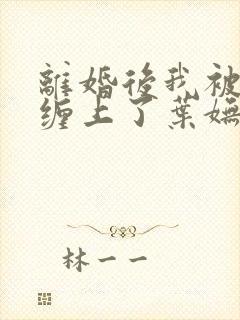 離婚後我被
缠上了葉嫵
林一一